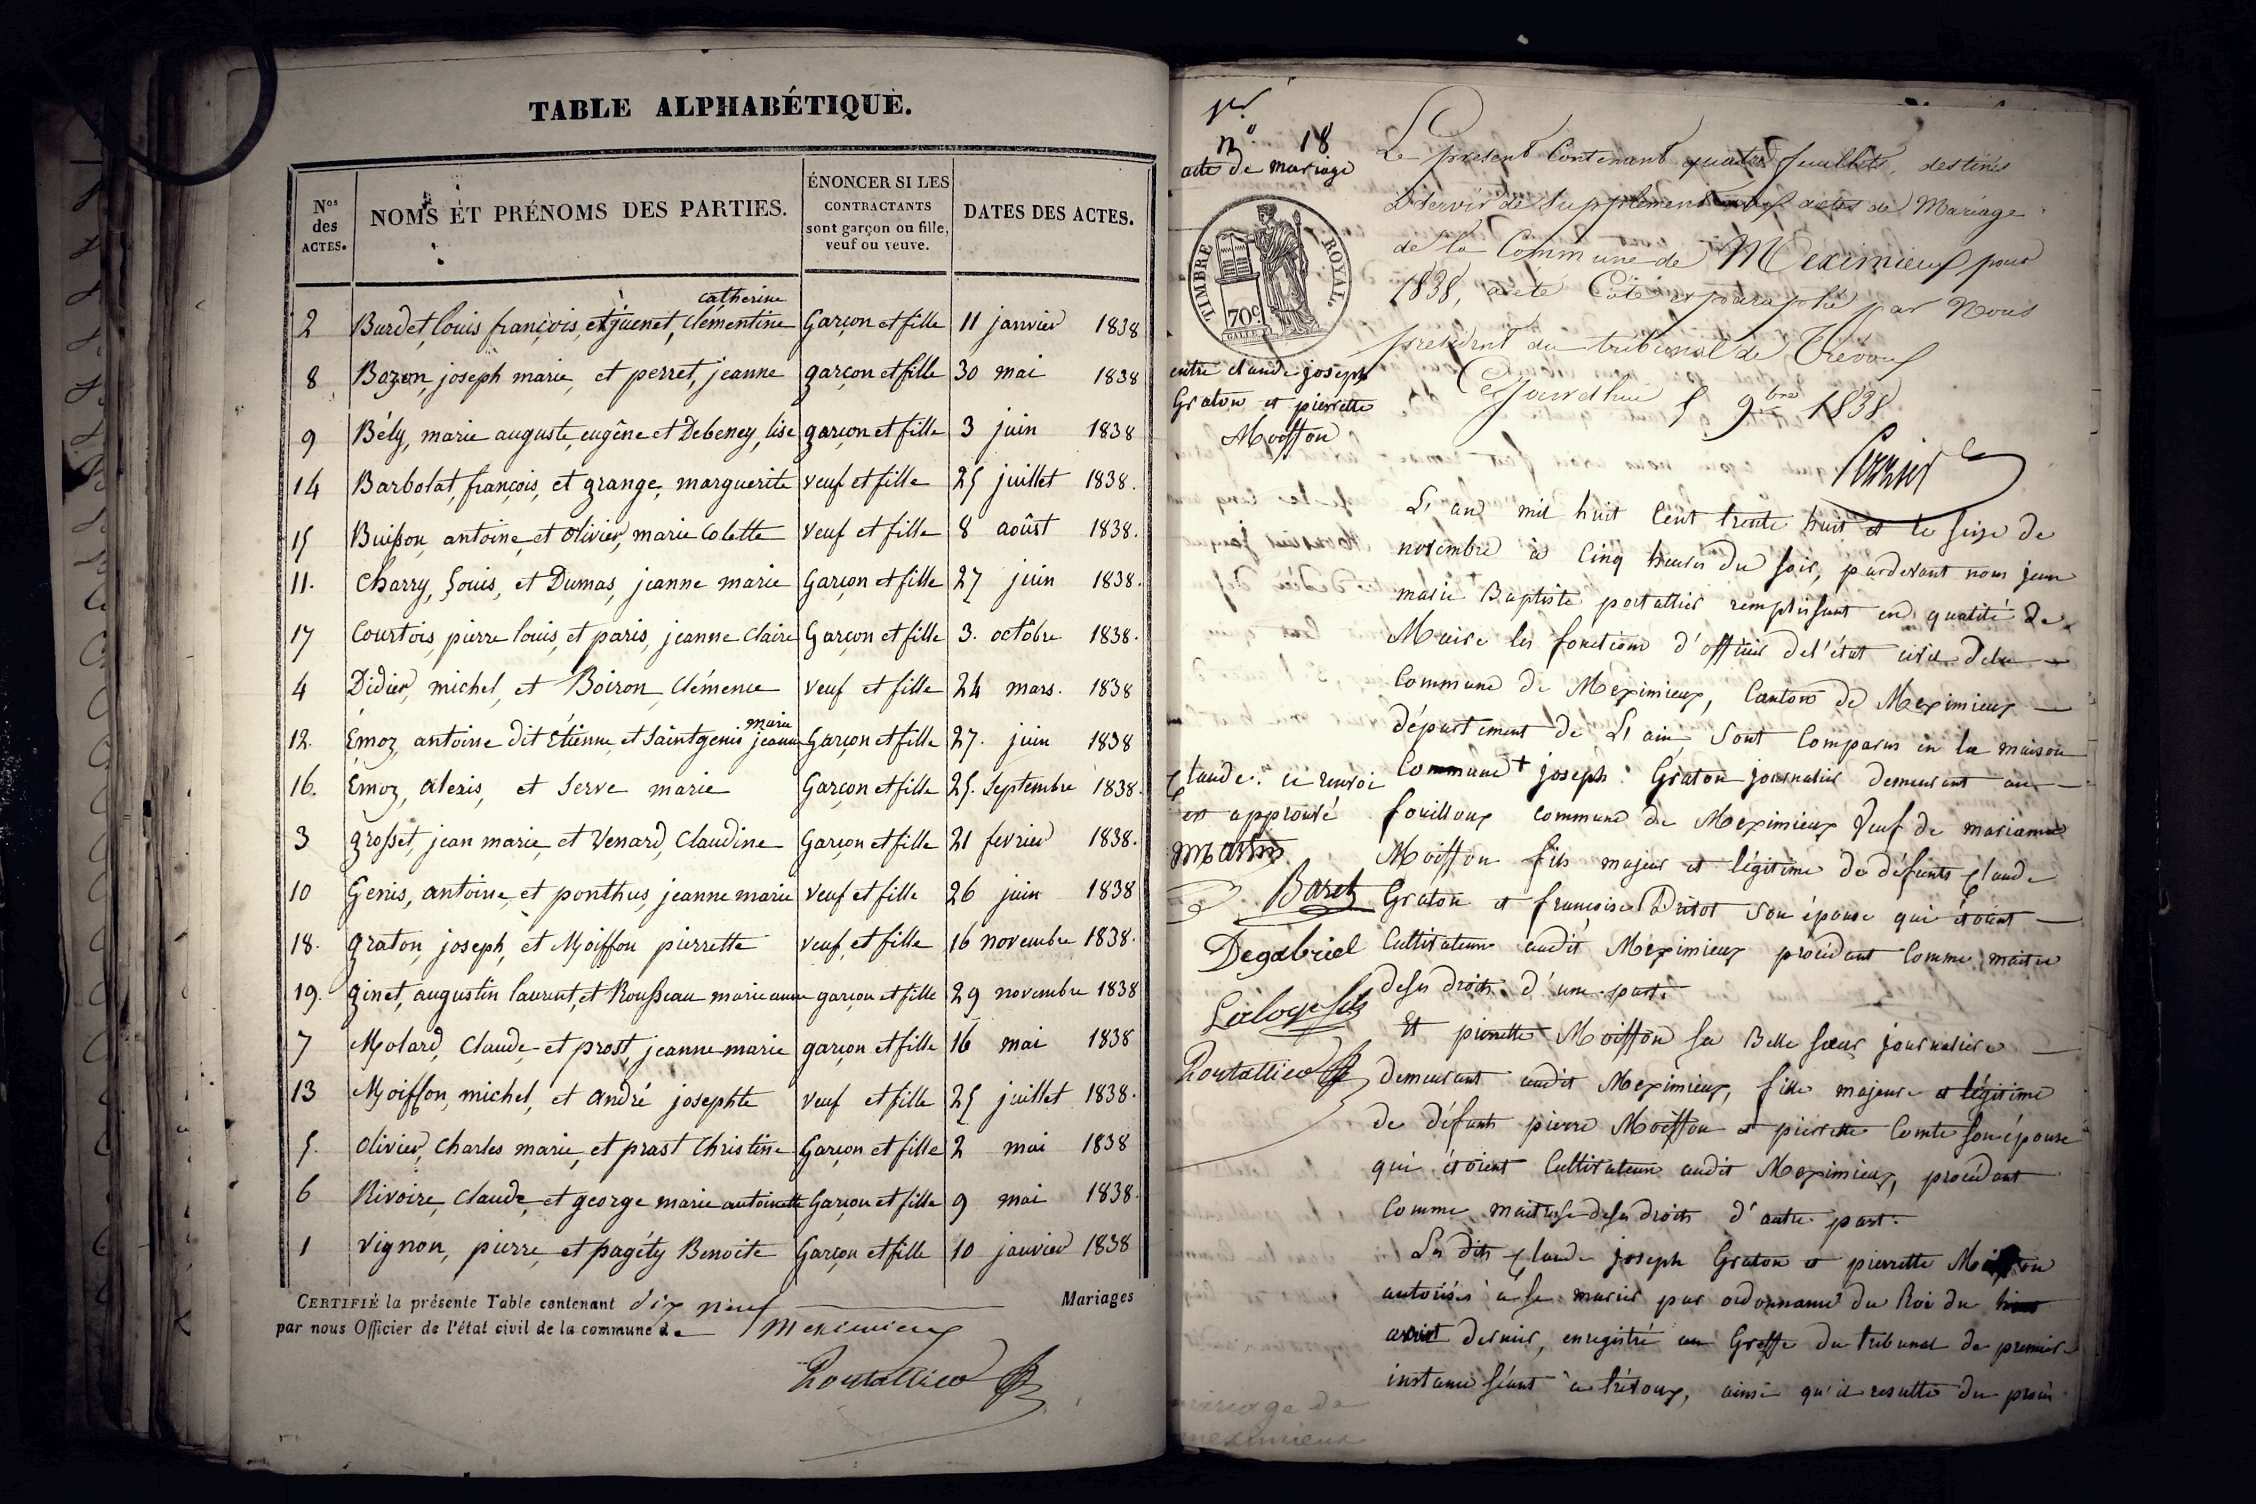 TABLE ALPHABÉTIQUE.
Nos des ACTES.
NOMS ET PRÉNOMS DES PARTIES.
ÉNONCER SI LES CONTRACTANTS sont garçon ou fille, veuf ou veuve.
DATES DES ACTES.
catherine
2 Burdet, louis françois, et guenet, clémentine Garçon et fille 11 janvier 1838
8 Bozon, joseph marie, et perret, jeanne garçon et fille 30 mai 1838
9 Bély, marie auguste, eugêne et Debeney, lise garçon et fille 3 juin 1838
14 Barbolat, françois, et grange, marguerite veuf et fille 25 juillet 1838.
15 Buisson, antoine, et olivier, marie Colette veuf et fille 8 aoûst 1838.
11. Charry, Louis, et Dumas, jeanne marie Garçon et fille 27 juin 1838.
17 Courtois, pierre louis, et paris, jeanne claire Garçon et fille 3. octôbre 1838.
4 Didier, michel, et Boiron, Clémence veuf et fille 24 mars. 1838
marie
12. Émoz, antoine dit Étienne et Saintgenis jeanne Garçon et fille 27. juin 1838
16. Émoz, alexis, et Serve marie Garçon et fille 25. Septembre 1838.
3 grosset, jean marie, et Venard, Claudine Garçon et fille 21 fevrier 1838.
10 Genis, antoine, et ponthus, jeanne marie veuf et fille 26 juin 1838
18. graton, joseph, et Moisson pierrette veuf, et fille 16 novembre 1838.
19. ginet, augustin laurent, et Rousseau marie anne garçon et fille 29 novembre 1838
7 Molard, Claude et prost, jeanne marie garçon et fille 16 mai 1838
13 Moisson, michel, et andré josephte veuf et fille 25 juillet 1838.
5. olivier, Charles marie, et prast Christine Garçon et fille 2 mai 1838
6 Rivoire, Claude, et george marie antoinette Garçon et fille 9 mai 1838.
1 Vignon, pierre, et pagéty Benoite Garçon et fille 10 janvier 1838
CERTIFIÉ la présente Table contenant dix neuf Mariages
par nous Officier de l'état civil de la commune de Meximieux
Portallier
1er
no. 18
acte de mariage
TIMBRE ROYAL.
70c
entre claude joseph
Graton et pierrette
Moisson
Le présent Contenant quatre feuillets, destinés
à Servir de Supplément aux actes de Mariage
de la Commune de Meximieux pour
1838, a été Coté et paraphé par Nous
président du tribunal de Trévoux
Cejourd'hui 5 9bre 1838
L'an mil huit Cent trente huit et le seize de
novembre à Cinq heures du soir, pardevant nous jean
marie Baptiste portallier remplissant en qualité de
Maire les fonctions d'officier de l'état civil dela
Commune de Meximieux, Canton de Meximieux
département de L'ain, Sont Comparus en la maison
Commune + joseph Graton journalier demeurant au
fouilloux commune de Meximieux Veuf de marianne
Moisson fils majeur et légitime de défunts Claude
Graton et françoise son épouse qui étoient
Cultivateurs audit Meximieux procédant Comme maitre
deses droits d'une part.
Claude. ce renvoi
est approuvé
Martin
Baret
Degabriel
Portallier
Et pierrette Moisson sa Belle Sœur journalière
demeurant audit Meximieux, fille majeure et légitime
de défunts pierre Moisson et pierrette Comte son épouse
qui étoient Cultivateurs audit Meximieux, procédant
Comme maitresse deses droits d'autre part.
Les dits Claude joseph Graton et pierrette Moisson
autorisés à se marier par ordonnance du Roi du
dernier, enregistré au Greffe du tribunal de premiere
instance séant à trévoux, ainsi qu'il resulte du procès
mariage de
meximieux